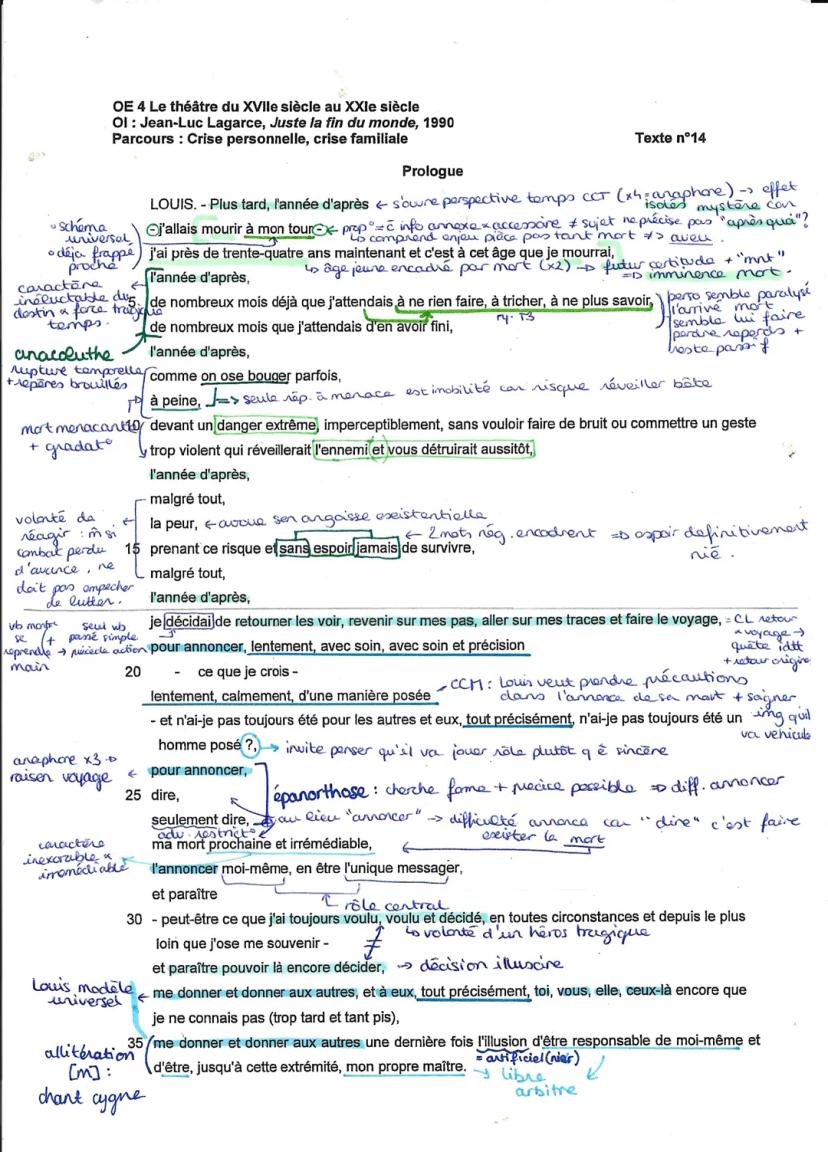 OE 4 Le théâtre du XVIIe siècle au XXIe siècle
OI : Jean-Luc Lagarce, Juste la fin du monde, 1990
Parcours : Crise personnelle, crise familiale
Texte n°14
Prologue
LOUIS. - Plus tard, l'année d'après
← s'ouvre perspective temps CCT (x4 = anaphore) → effet
isolés mystère car
j'allais mourir à mon tour
← prop° = c info annexe & accessoire ≠ sujet ne précise pas "après quoi"?
↳ comprend enjeu pièce pas tant mort ≠> aveu.
° schéma
universel
° déja frappé
proche
j'ai près de trente-quatre ans maintenant et c'est à cet âge que je mourrai,
↳ âge jeune encadré par mort (x2) → futur certitude + "mnt"
=> imminence mort.
l'année d'après,
caractère
inéluctable du
destin & force tragique
temps.
5 de nombreux mois déjà que j'attendais à ne rien faire, à tricher, à ne plus savoir,
ry. T3
perso semble paralysé
l'arrivé mort
semble lui faire
perdre reperds +
reste passif
de nombreux mois que j'attendais d'en avoir fini,
anacoluthe
l'année d'après,
rupture temporelle
+ repères brouillés
comme on ose bouger parfois,
à peine,
=> seule rép. à menace est imobilité car risque réveiller bête
mort menacante
+ gradat°
10 devant un danger extrême, imperceptiblement, sans vouloir faire de bruit ou commettre un geste
trop violent qui réveillerait l'ennemi et vous détruirait aussitôt,
l'année d'après,
malgré tout,
la peur,
← avoue son angoisse existentielle
volonté de
réagir : m̂ si
combat perdu
d'avance, ne
doit pas empecher
de lutter.
← 2 mots nég. encadrent => espoir definitivement
nié.
15 prenant ce risque et sans espoir jamais de survivre,
malgré tout,
l'année d'après,
je décidai de retourner les voir, revenir sur mes pas, aller sur mes traces et faire le voyage,
= CL retour
& voyage →
quête idtt
+ retour origine
vb montre
se
reprendre
main
seul vb
passé simple
→ précède action
pour annoncer, lentement, avec soin, avec soin et précision
20 - ce que je crois -
lentement, calmement, d'une manière posée
CCM : Louis veut prendre précautions
dans l'annonce de sa mort + soigner
img qu'il
va vehiculé
- et n'ai-je pas toujours été pour les autres et eux, tout précisément, n'ai-je pas toujours été un
homme posé ?,
→ invite penser qu'il va jouer rôle plutôt q ê sincère
anaphore x3 →
raison voyage
pour annoncer,
25 dire,
épanorthose : cherche forme + précise possible => diff. annoncer
seulement dire,
adv. restrict°
au lieu "annoncer" → difficulté annonce car "dire" c'est faire
exister la mort
ma mort prochaine et irrémédiable,
caractère
inexorable &
irremédiable
l'annoncer moi-même, en être l'unique messager,
et paraître
rôle central
30 - peut-être ce que j'ai toujours voulu, voulu et décidé, en toutes circonstances et depuis le plus
↳ volonté d'un héros tragique
loin que j'ose me souvenir -
≠
et paraître pouvoir là encore décider,
→ décision illusoire
Louis modèle
universel
me donner et donner aux autres, et à eux, tout précisément, toi, vous, elle, ceux-là encore que
je ne connais pas (trop tard et tant pis),
35 me donner et donner aux autres une dernière fois l'illusion d'être responsable de moi-même et
= artificiel (nier)
d'être, jusqu'à cette extrémité, mon propre maître.
→ libre
arbitre
allitération
[m] :
chant cygne